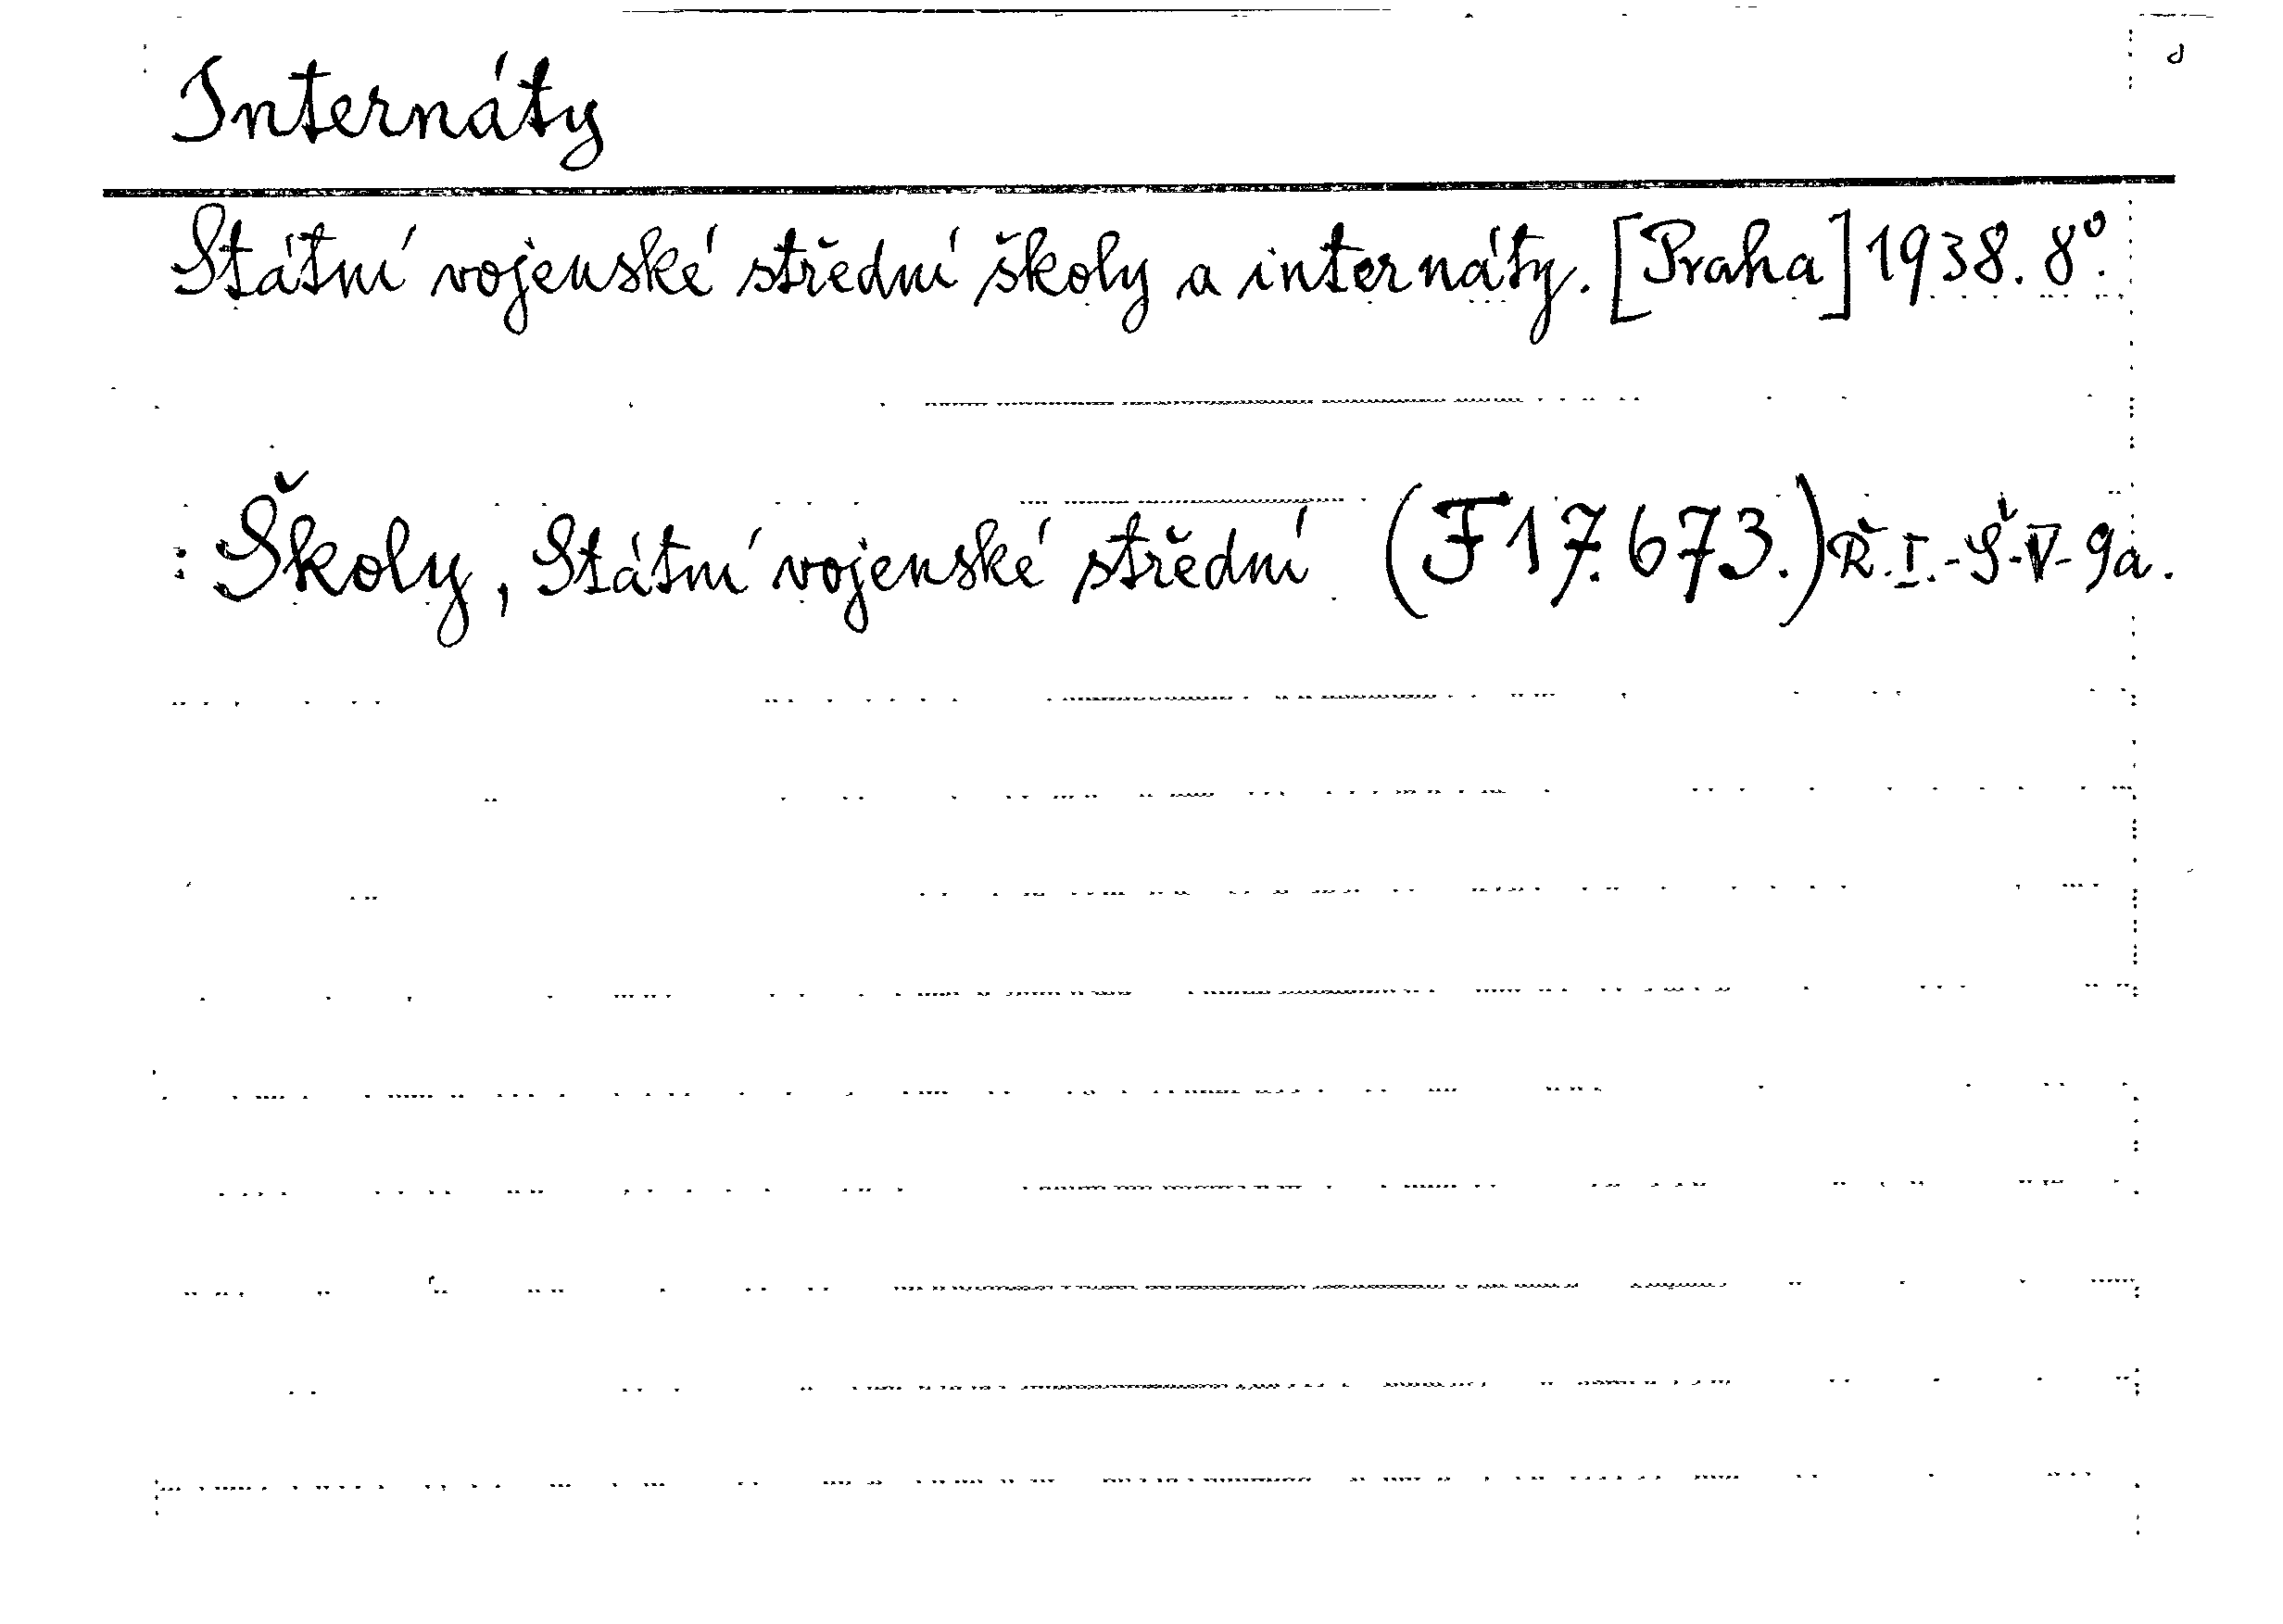 Internáty
Státní vojenské střední školy a internáty. [Praha] 1938. 8°.
: Školy, Státní vojenské střední (F 17.673.) Ř.I.-Š-V-9a.